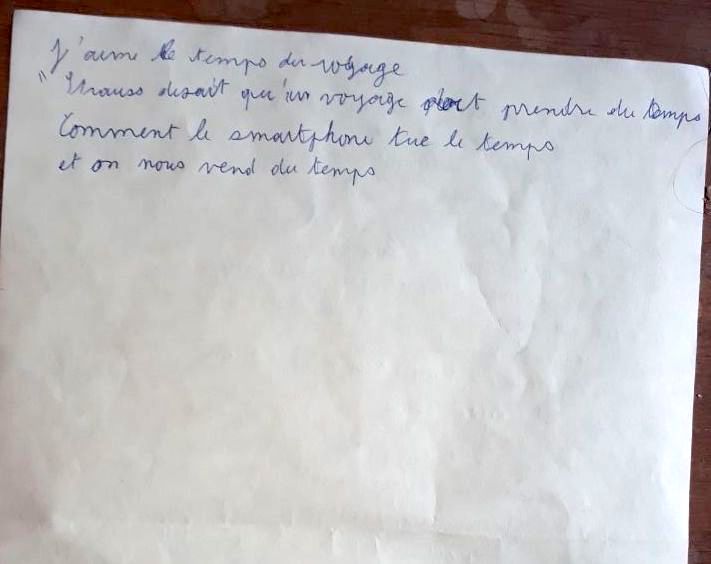 J'aime le temps du voyage
" Strauss disait qu'un voyage doit prendre du temps
Comment le smartphone tue le temps
et on nous vend du temps